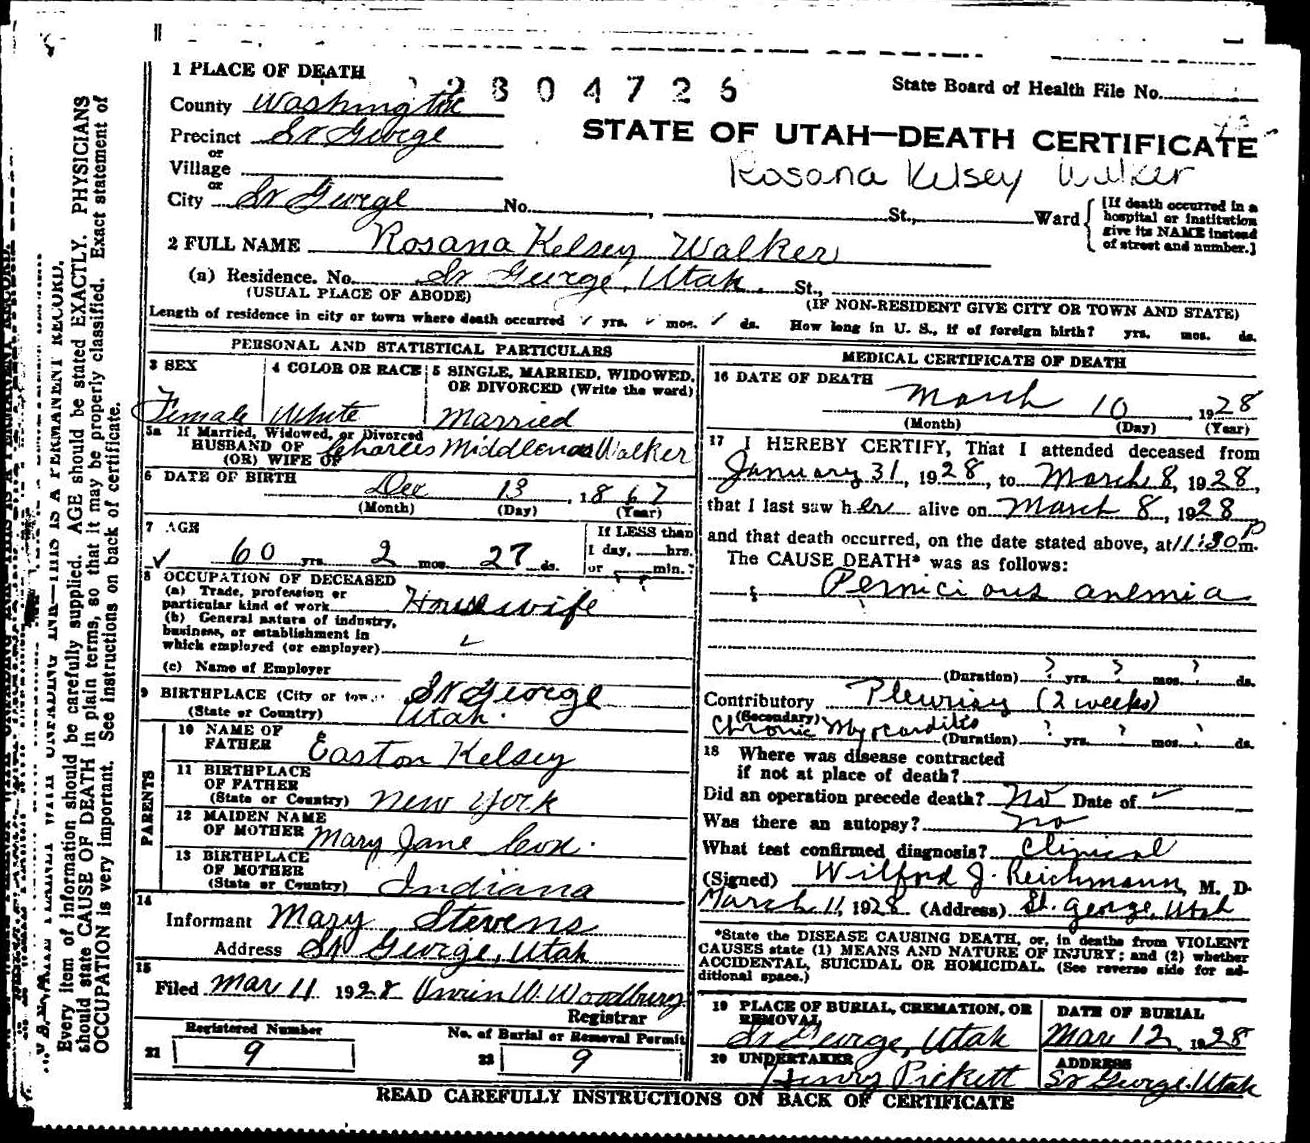 1 PLACE OF DEATH
2304726
State Board of Health File No.
County Washington
STATE OF UTAH—DEATH CERTIFICATE
Precinct St George
or
Rosana Kelsey Walker
Village
or
City St George No. St., Ward
[If death occurred in a
hospital or institution
give its NAME instead
of street and number.]
2 FULL NAME Rosana Kelsey Walker
(a) Residence. No. St George, Utah. St.,
(USUAL PLACE OF ABODE) (IF NON-RESIDENT GIVE CITY OR TOWN AND STATE)
Length of residence in city or town where death occurred yrs. mos. ds. How long in U. S., if of foreign birth? yrs. mos. ds.
PERSONAL AND STATISTICAL PARTICULARS
3 SEX
Female
4 COLOR OR RACE
White
5 SINGLE, MARRIED, WIDOWED,
OR DIVORCED (Write the word)
Married
5a If Married, Widowed, or Divorced
HUSBAND OF
(OR) WIFE OF Charles Walker
6 DATE OF BIRTH
Dec 13, 1867
(Month) (Day) (Year)
7 AGE
60 yrs. 2 mos. 27 ds.
If LESS than
1 day, hrs.
or min.?
8 OCCUPATION OF DECEASED
(a) Trade, profession or
particular kind of work Housewife
(b) General nature of industry,
business, or establishment in
which employed (or employer)
(c) Name of Employer
9 BIRTHPLACE (City or St George
(State or Country) Utah.
PARENTS
10 NAME OF
FATHER Easton Kelsey
11 BIRTHPLACE
OF FATHER
(State or Country) New York
12 MAIDEN NAME
OF MOTHER Mary Jane Cox.
13 BIRTHPLACE
OF MOTHER
(State or Country) Indiana
14
Informant Mary Stevens
Address St George, Utah
15
Filed Mar 11 1928 W. Woodbury
Registrar
Registered Number
21 9
No. of Burial or Removal Permit
22 9
MEDICAL CERTIFICATE OF DEATH
16 DATE OF DEATH
March 10, 1928
(Month) (Day) (Year)
17 I HEREBY CERTIFY, That I attended deceased from
January 31, 1928, to March 8, 1928,
that I last saw her alive on March 8, 1928
and that death occurred, on the date stated above, at 11:30 P m.
The CAUSE DEATH* was as follows:
Pernicious anemia
(Duration) ? yrs. ? mos. ? ds.
Contributory Pleurisy (2 weeks)
(Secondary)
Chronic Myocarditis
(Duration) ? yrs. ? mos. ds.
18 Where was disease contracted
if not at place of death?
Did an operation precede death? No Date of
Was there an autopsy? no
What test confirmed diagnosis? Clinical
(Signed) Wilford J. Reichmann, M. D.
March 11, 1928 (Address) St. George, Utah
*State the DISEASE CAUSING DEATH, or, in deaths from VIOLENT
CAUSES state (1) MEANS AND NATURE OF INJURY; and (2) whether
ACCIDENTAL, SUICIDAL OR HOMICIDAL. (See reverse side for ad-
ditional space.)
19 PLACE OF BURIAL, CREMATION, OR
REMOVAL
St George, Utah
DATE OF BURIAL
Mar 12, 1928
20 UNDERTAKER
Henry Pickett
ADDRESS
St George, Utah
READ CAREFULLY INSTRUCTIONS ON BACK OF CERTIFICATE
THIS IS A PERMANENT RECORD.
Every item of information should be carefully supplied. AGE should be stated EXACTLY. PHYSICIANS
should state CAUSE OF DEATH in plain terms, so that it may be properly classified. Exact statement of
OCCUPATION is very important. See instructions on back of certificate.